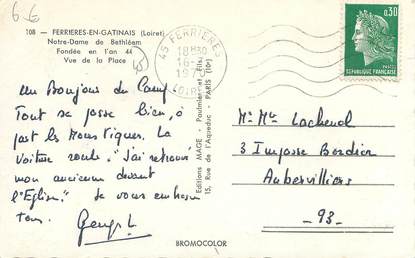 6 €
108 - FERRIERES-EN-GATINAIS (Loiret)
Notre-Dame de Bethléem
Fondée en l'an 44
Vue de la Place
45 FERRIERES
18H30
LOIRET
0,30
REPUBLIQUE FRANÇAISE
POSTES
Editions MAGE - Poulmier et Fils,
15, Rue de l'Aqueduc - PARIS (10e)
un Bonjour du Camp
Tout se passe bien, à
part les Moustiques. La
Voiture roule. "J'ai retrouvé
mon ancienne devant
l'Eglise." Je vous embrasse
tous.
Mr Me
3 Impasse Bordier
Aubervilliers
- 93 -
BROMOCOLOR